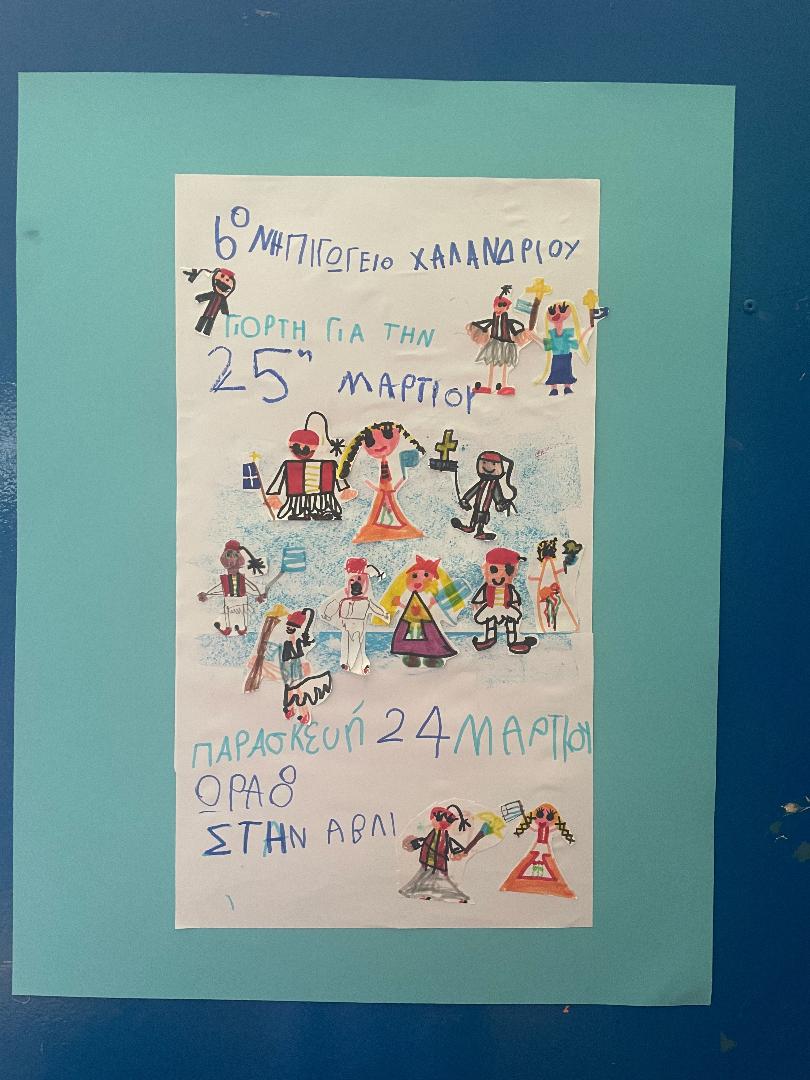 6º ΝΗΠΙΓΩΓΕΙΟ ΧΑΛΑΝΔΡΙΟΥ
ΓΙΟΡΤΗ ΓΙΑ ΤΗΝ
25η ΜΑΡΤΙΟΥ
ΠΑΡΑσΚΕυή 24 ΜΑΡΤΙΟΥ
ΩΡΑ 8
ΣΤΗΝ ΑΒΛΙ